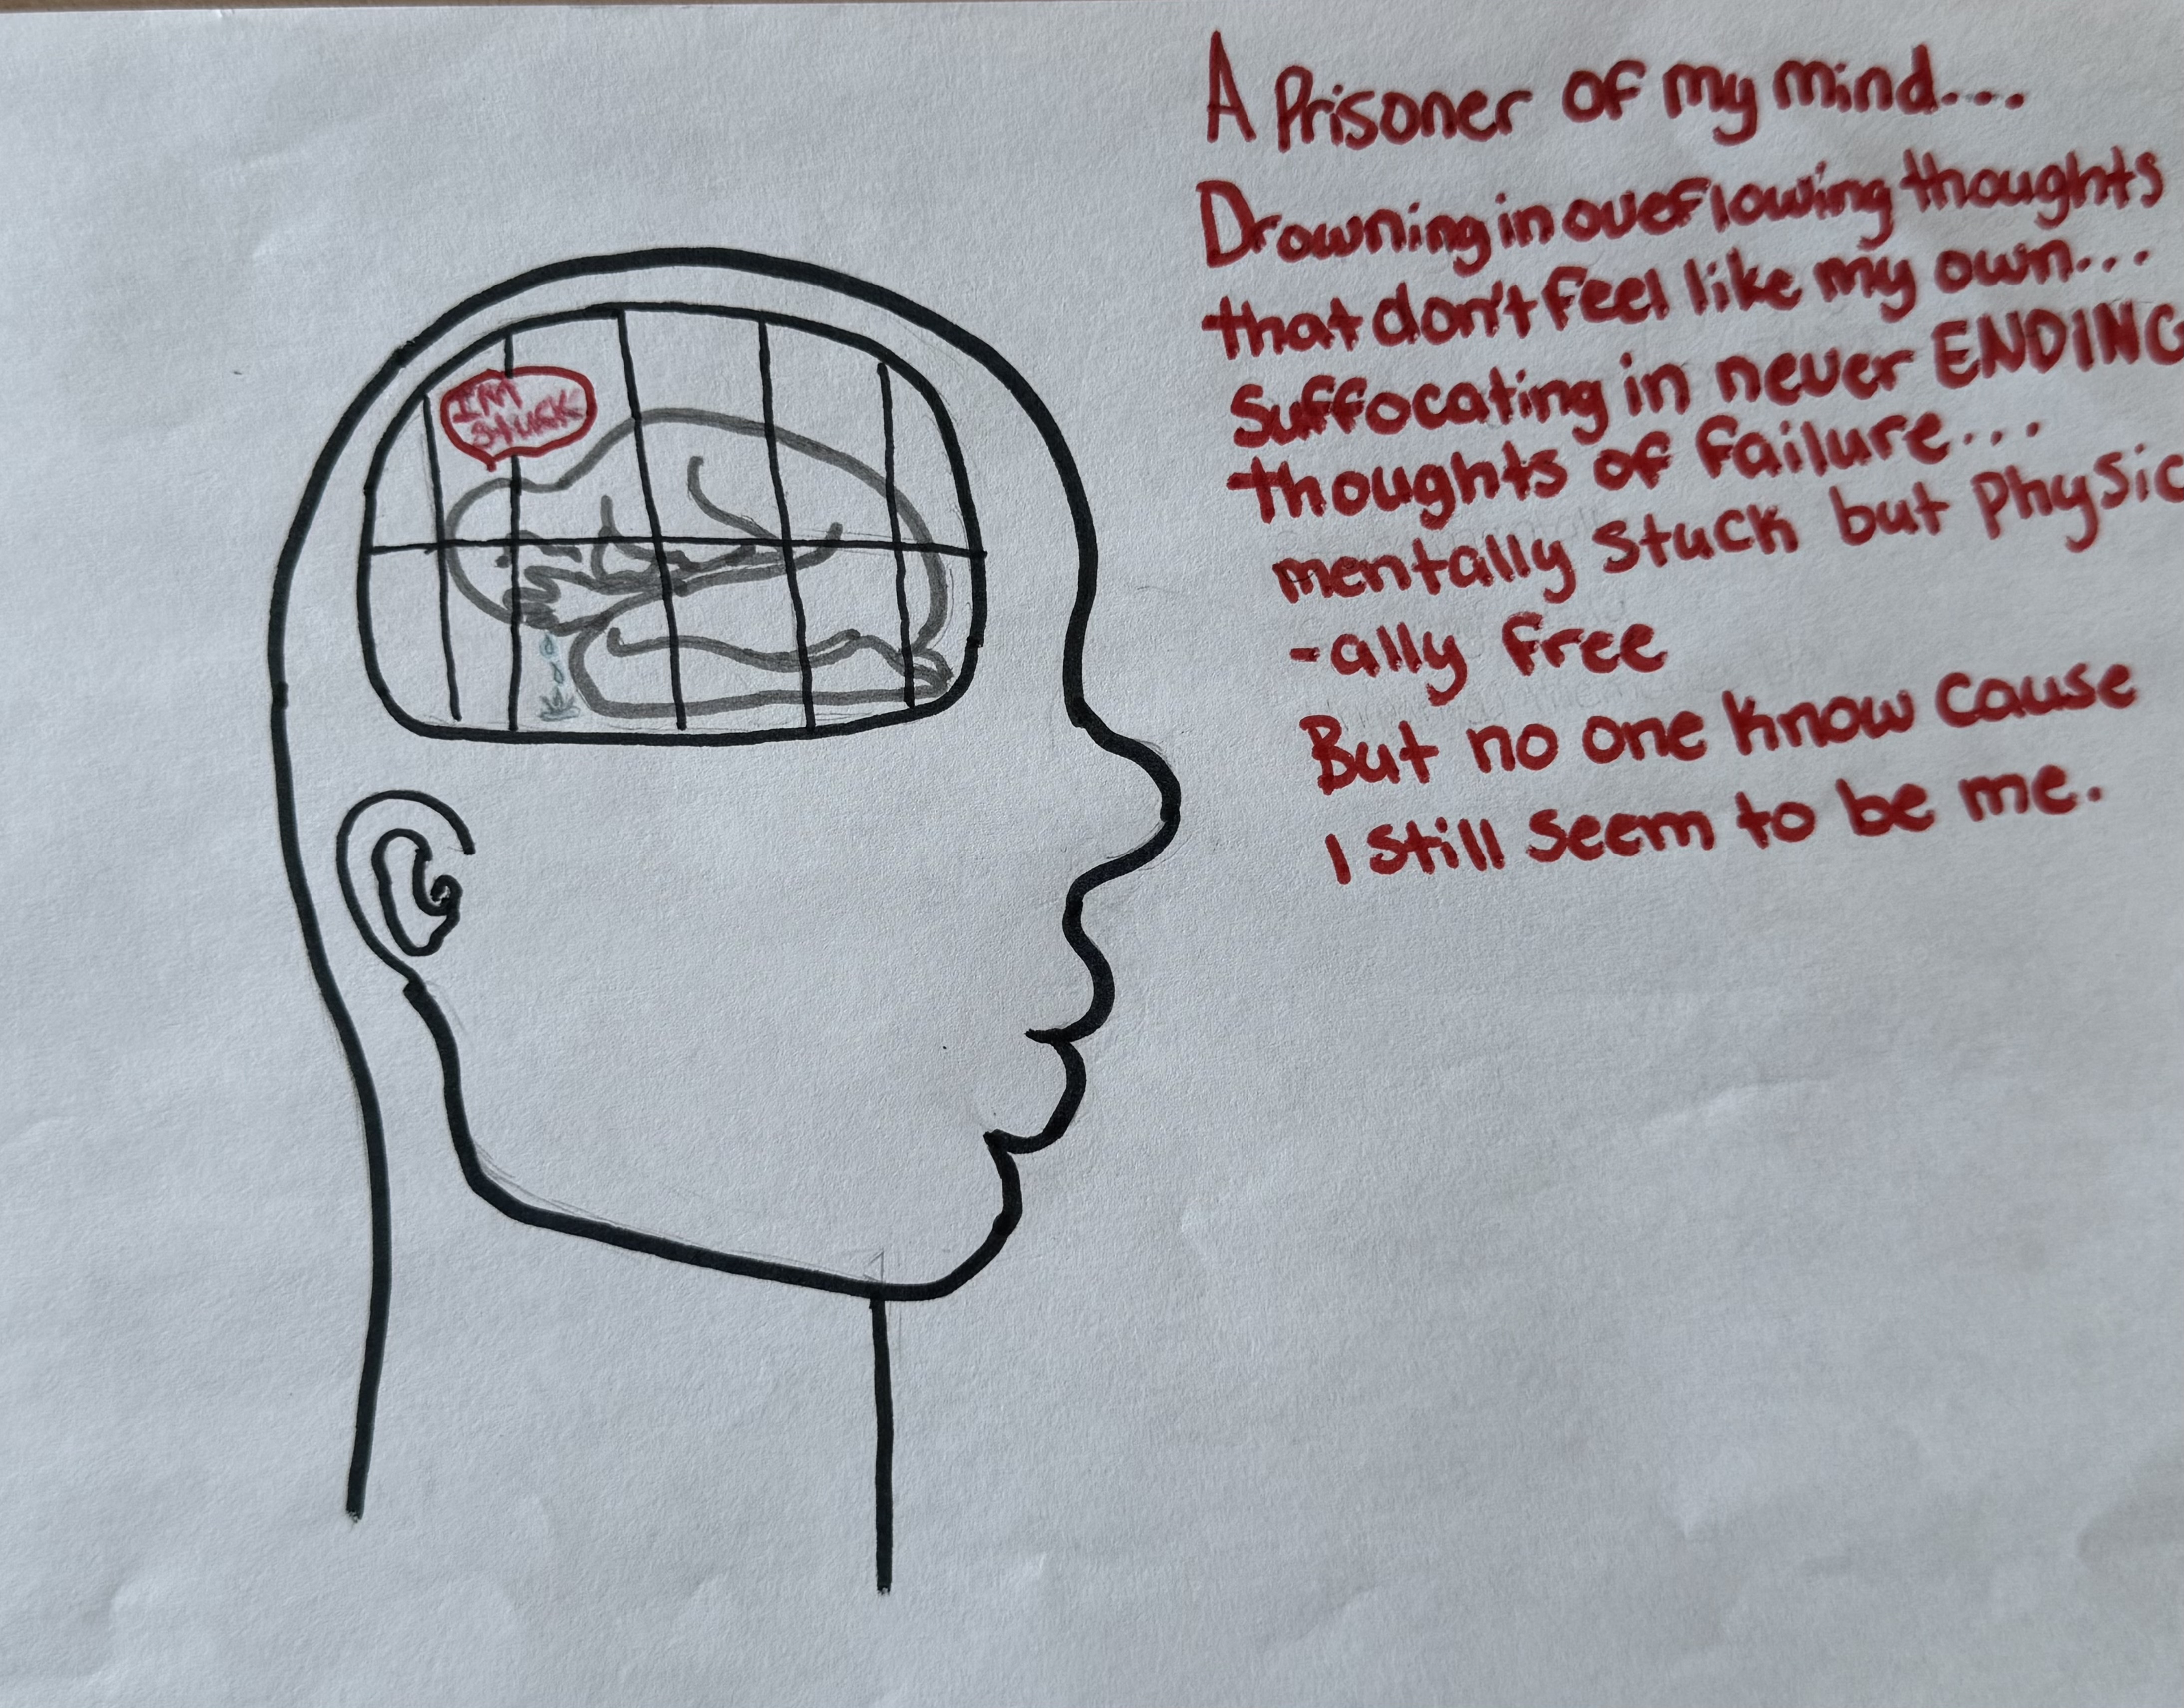 A Prisoner of my mind...
Drowning in overflowing thoughts
that don't feel like my own...
Suffocating in never ENDING
thoughts of failure...
mentally stuck but Physic
-ally free
But no one know cause
I still seem to be me.
I'M
STUCK